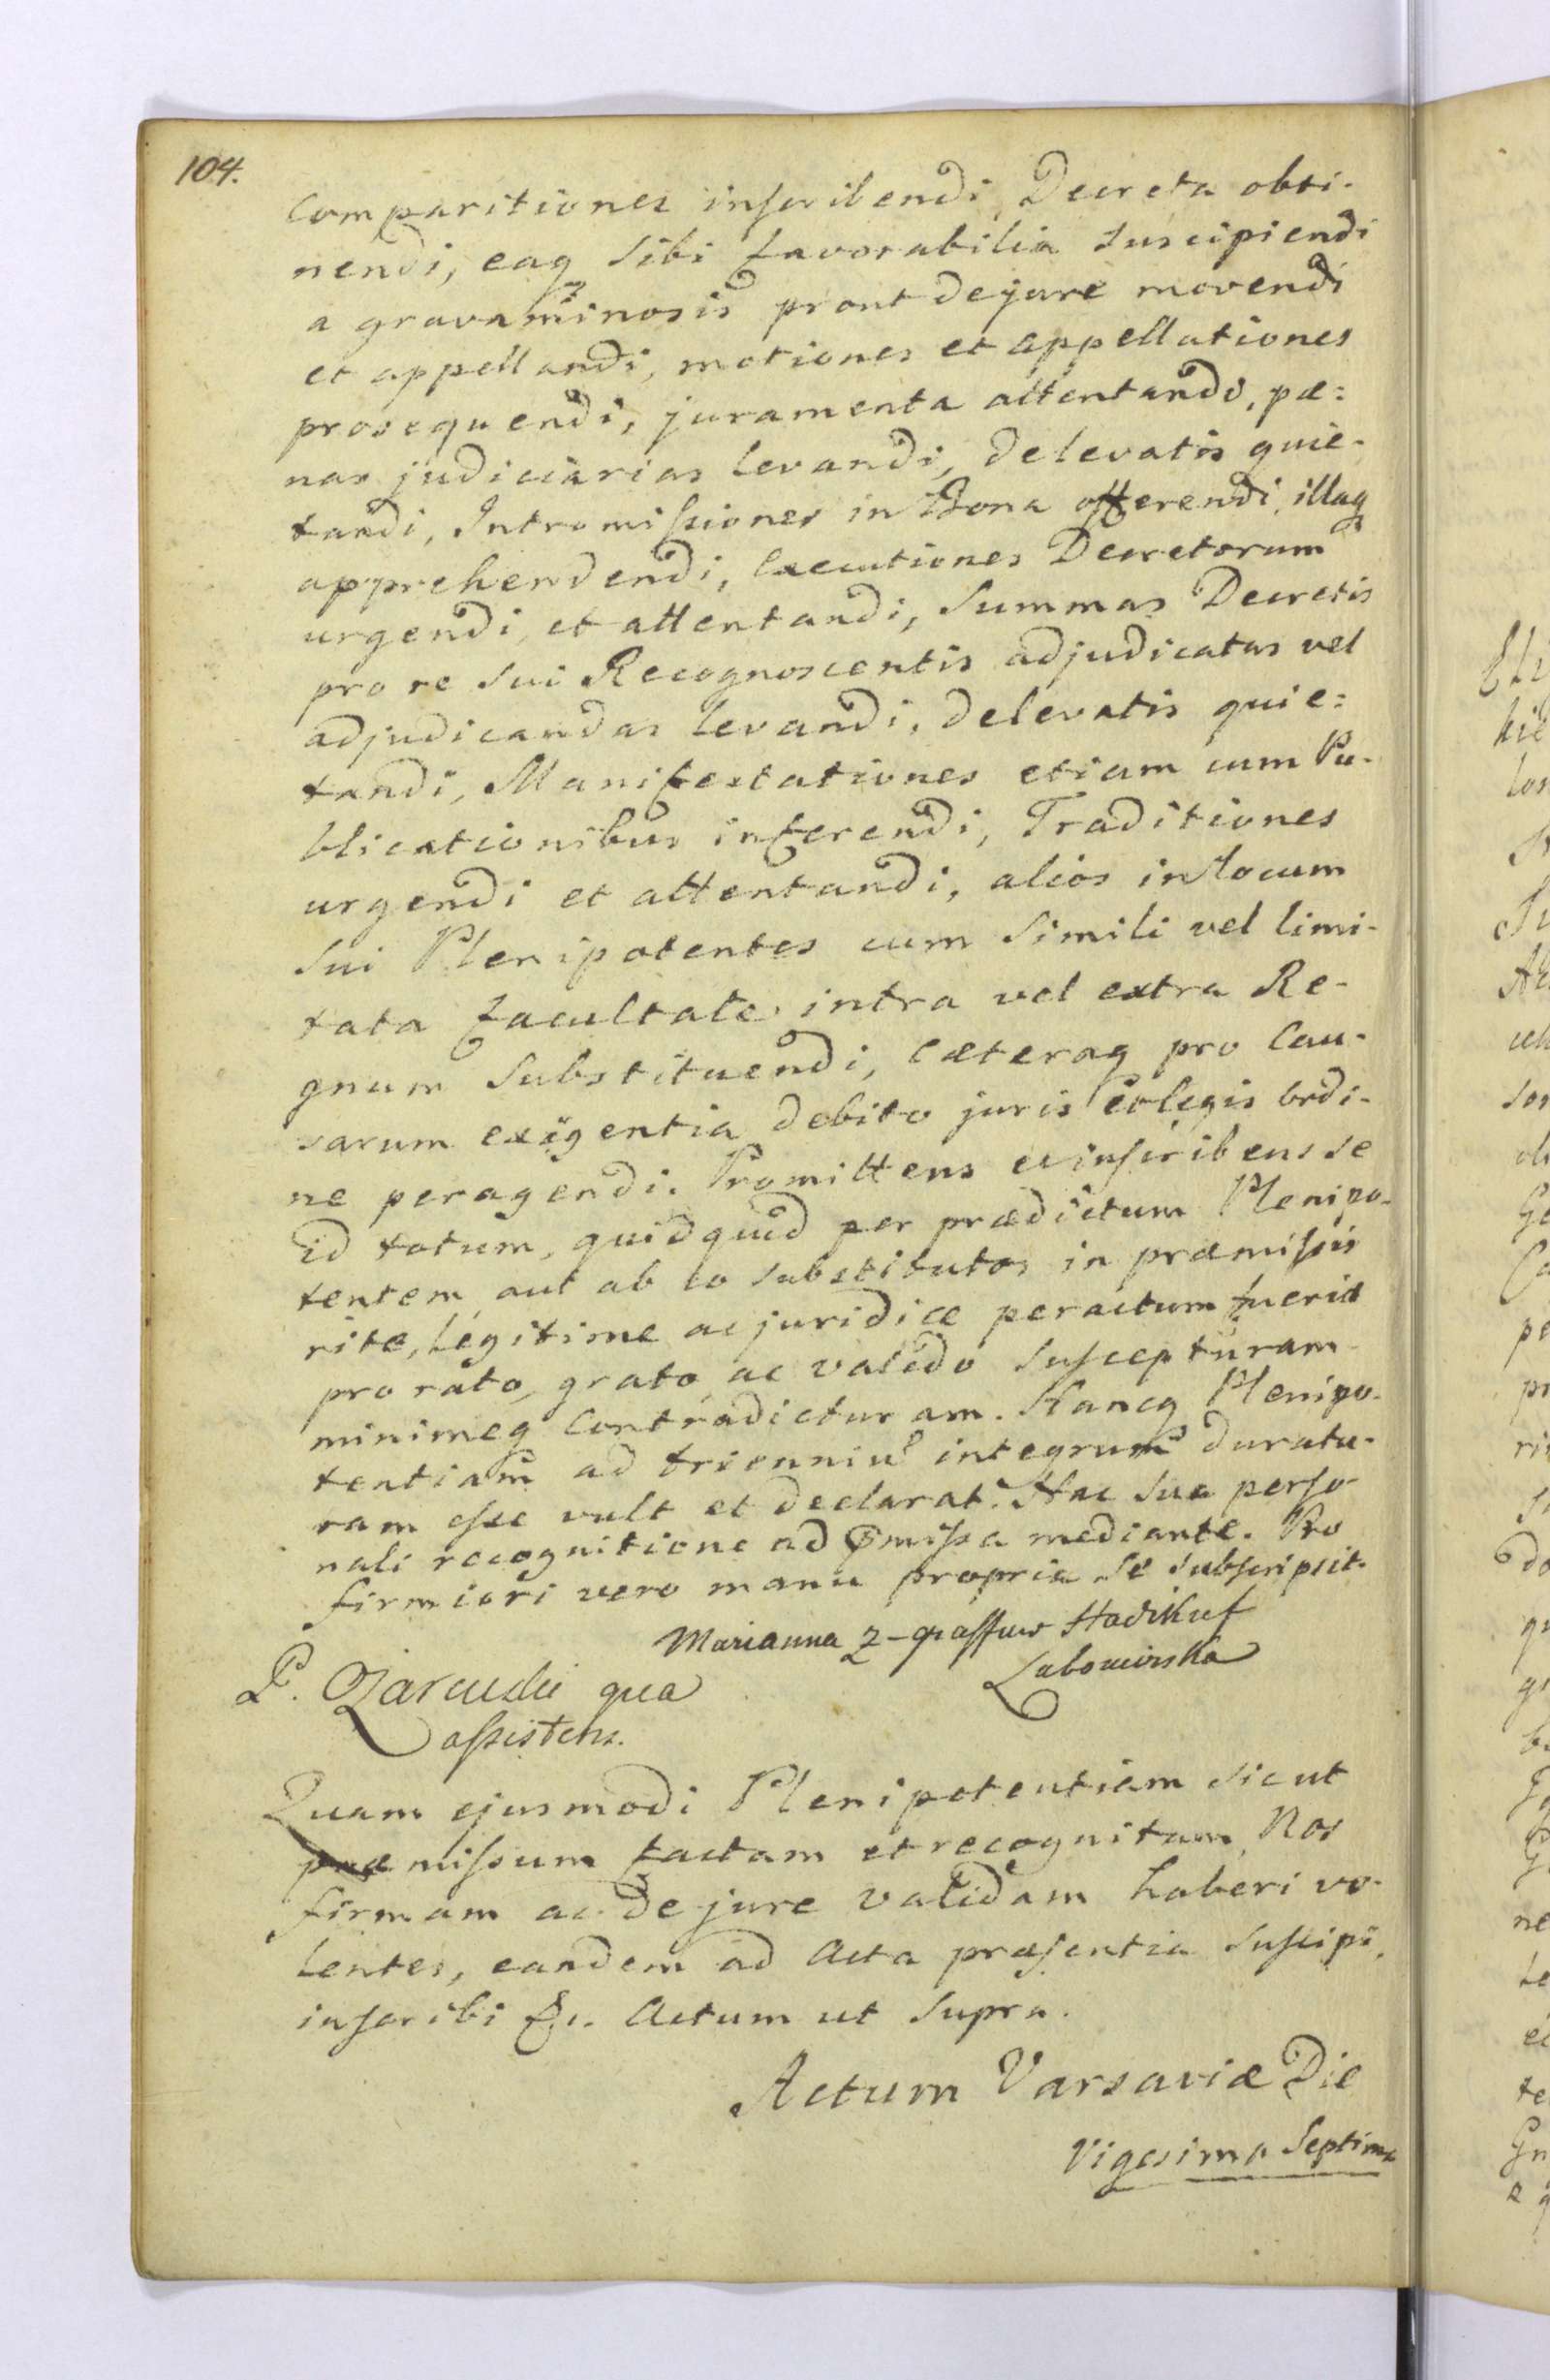 104.
Comparitiones inscribendi, Decreta obti-
nendi, eaq sibi favorabilia suscipiendi
a gravaminosis prout de jure movendi
et appellandi, motiones et appellationes
prosequendi, juramenta attentando, pæ=
nas judiciarias levandi, de levatis quie-
tandi, Intromissiones in Bona offerendi, illaq
apprehendendi, Executiones Decretorum
urgendi, et attentandi, Summas Decretis
pro re sui Recognoscentis adjudicatas vel
adjudicandas levandi, de levatis quie=
tandi, Manifestationes etiam cum Pu-
blicationibus inferendi, Traditiones
urgendi et attentandi, alios in locum
sui Plenipotentes cum simili vel limi-
tata facultate intra vel extra Re-
gnum Substituendi, Cæteraq pro Cau-
sarum exigentia debito juris et legis ordi-
ne peragendi. Promittens et inscribens se
id totum, quidquid per prædictum Plenipo-
tentem aut ab eo substitutos in præmissis
rite, legitime ac juridice peractum fuerit
pro rato, grato ac valido suscepturam
minimeq Contradicturam. Hancq Plenipo-
tentiam ad trienniu integrum duratu-
ram esse vult et declarat. Hac sua perso-
nali recognitione ad pmissa mediante. Pro
firmiori vero manu propria se subscripsit.
Marianna z Hadikuf
Lubomirska
P. qua
assistens.
Quam ejusmodi Plenipotentiam sicut
præmissum factam et recognitam, Nos
firmam ac de jure validam haberi vo-
lentes, eandem ad Acta præsentia suscipi,
inscribi &c. Actum ut supra.
Actum Varsaviæ Die
Vigesima Septima